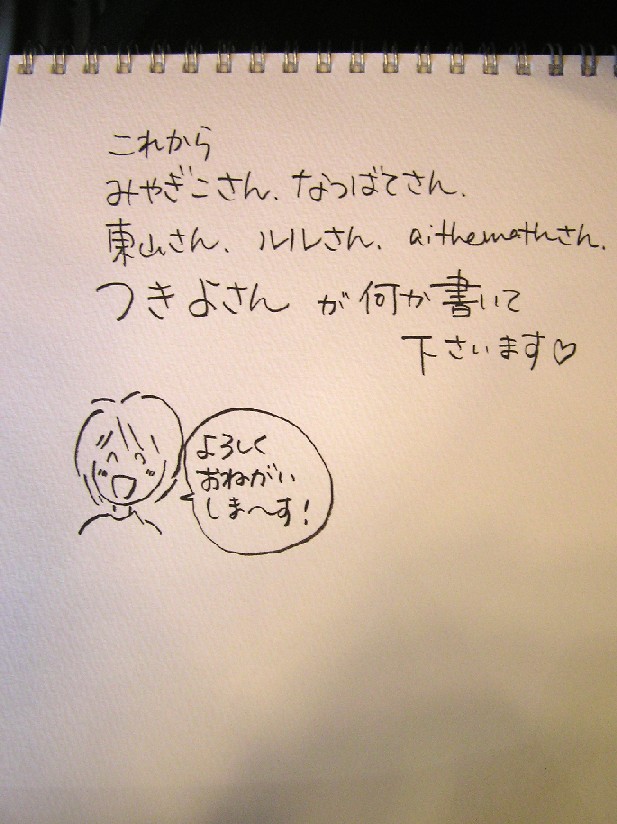 これから
みやぎこさん、なつばてさん、
東山さん、ルルさん、aithemathさん、
つきよさん が何か書いて
下さいます♡
よろしく
おねがい
しま〜す!